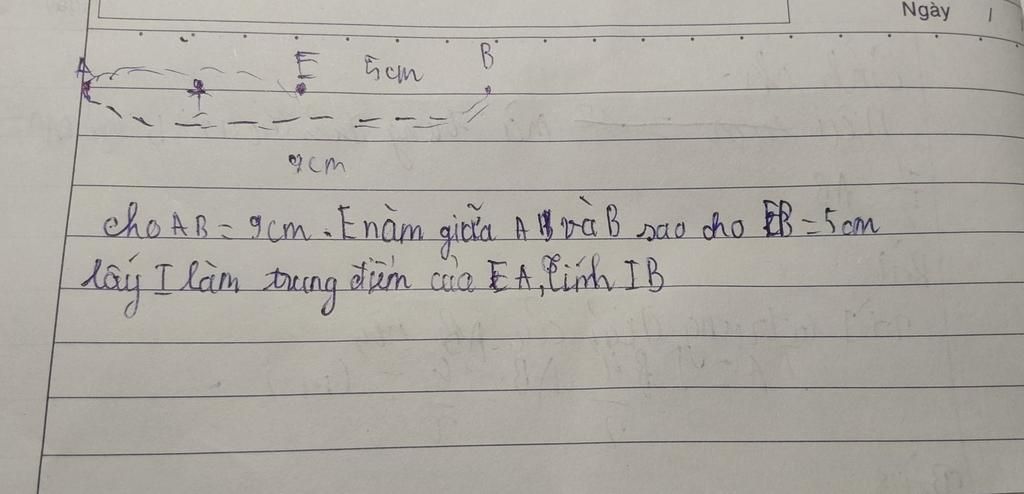 Ngày
A E 5cm B
I
9cm
cho AB = 9cm. E nằm giữa A và B sao cho EB = 5cm
lấy I làm trung điểm của EA, tính IB